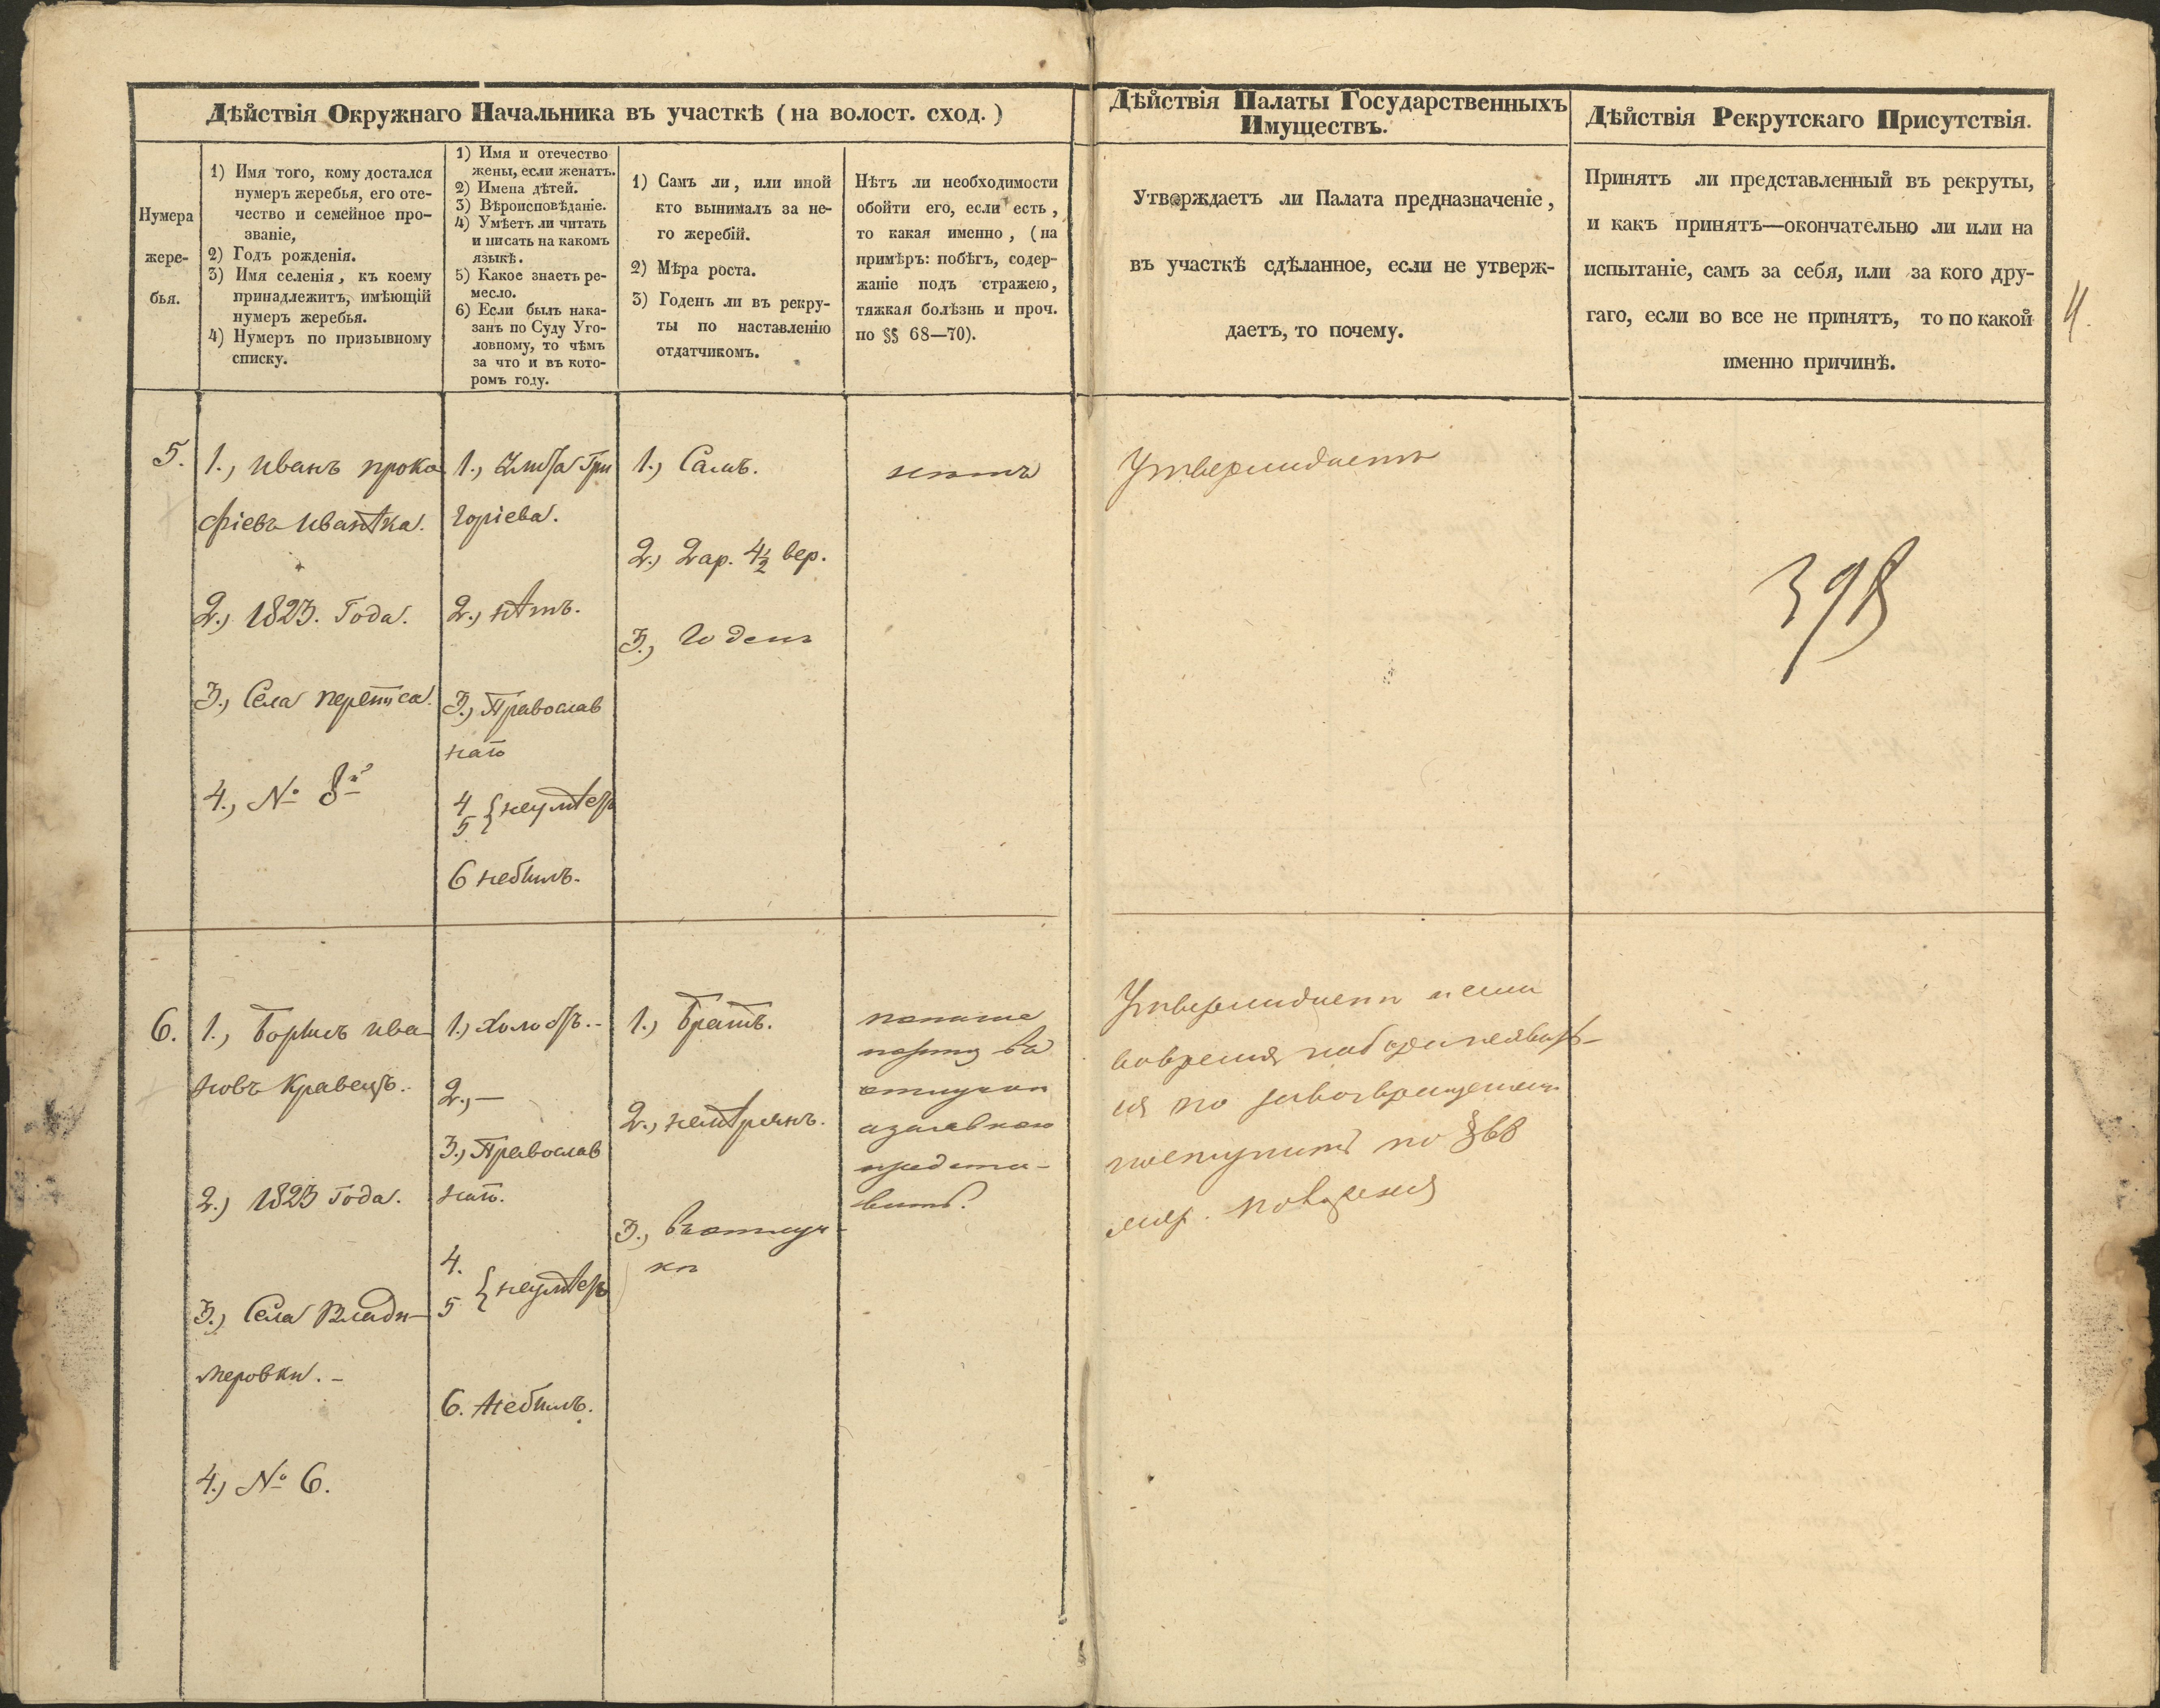 Дѣйствія Окружнаго Начальника въ участкѣ (на волост. сход.)
Нумера
жере-
бья.
1) Имя того, кому достался
нумеръ жеребья, его оте-
чество и семейное про-
званіе,
2) Годъ рожденія.
3) Имя селенія, къ коему
принадлежитъ, имѣющій
нумеръ жеребья.
4) Нумеръ по призывному
списку.
1) Имя и отечество
жены, если женатъ.
2) Имена дѣтей.
3) Вѣроисповѣданіе.
4) Умѣетъ ли читать
и писать на какомъ
языкѣ.
5) Какое знаетъ ре-
месло.
6) Если былъ нака-
занъ по Суду Уго-
ловному, то чѣмъ
за что и въ кото-
ромъ году.
1) Самъ ли, или иной
кто вынималъ за не-
го жеребій.
2) Мѣра роста.
3) Годенъ ли въ рекру-
ты по наставленію
отдатчикомъ.
Нѣтъ ли необходимости
обойти его, если есть,
то какая именно, (на
примѣръ: побѣгъ, содер-
жаніе подъ стражею,
тяжкая болѣзнь и проч.
по §§ 68—70).
Дѣйствія Палаты Государственныхъ
Имуществъ.
Утверждаетъ ли Палата предназначеніе,
въ участкѣ сдѣланное, если не утверж-
даетъ, то почему.
Дѣйствія Рекрутскаго Присутствія.
Принятъ ли представленный въ рекруты,
и какъ принятъ—окончательно ли или на
испытаніе, самъ за себя, или за кого дру-
гаго, если во все не принятъ, то по какой
именно причинѣ.
4.
5.
1., Иванъ Проко
фіевъ Ивантка.
2., 1823. Года.
3., Села
4., № 8й
1., Гри
горіева.
2., нѣтъ.
3., Православ
наго
4
5 { неумѣетъ
6 небылъ.
1., Самъ.
2., 2 ар. 4½ вер.
3., Годенъ
нѣтъ
Утверждаетъ
398
6.
1., Борисъ Ива
новъ Кравецъ.
2., 1823 Года.
3., Села Влади-
меровки.-
4., № 6.
1., Холостъ.-
2., —
3., Православ
наго.
4.
5 { неумѣетъ
6. Небылъ.
1., Братъ.
2., немѣрянъ.
3., Въ отлуч-
кѣ
въ
отлучкѣ
предста-
вить.
Утверждаетъ и если
вовремя набора неявит-
ся по
поступить по § 68